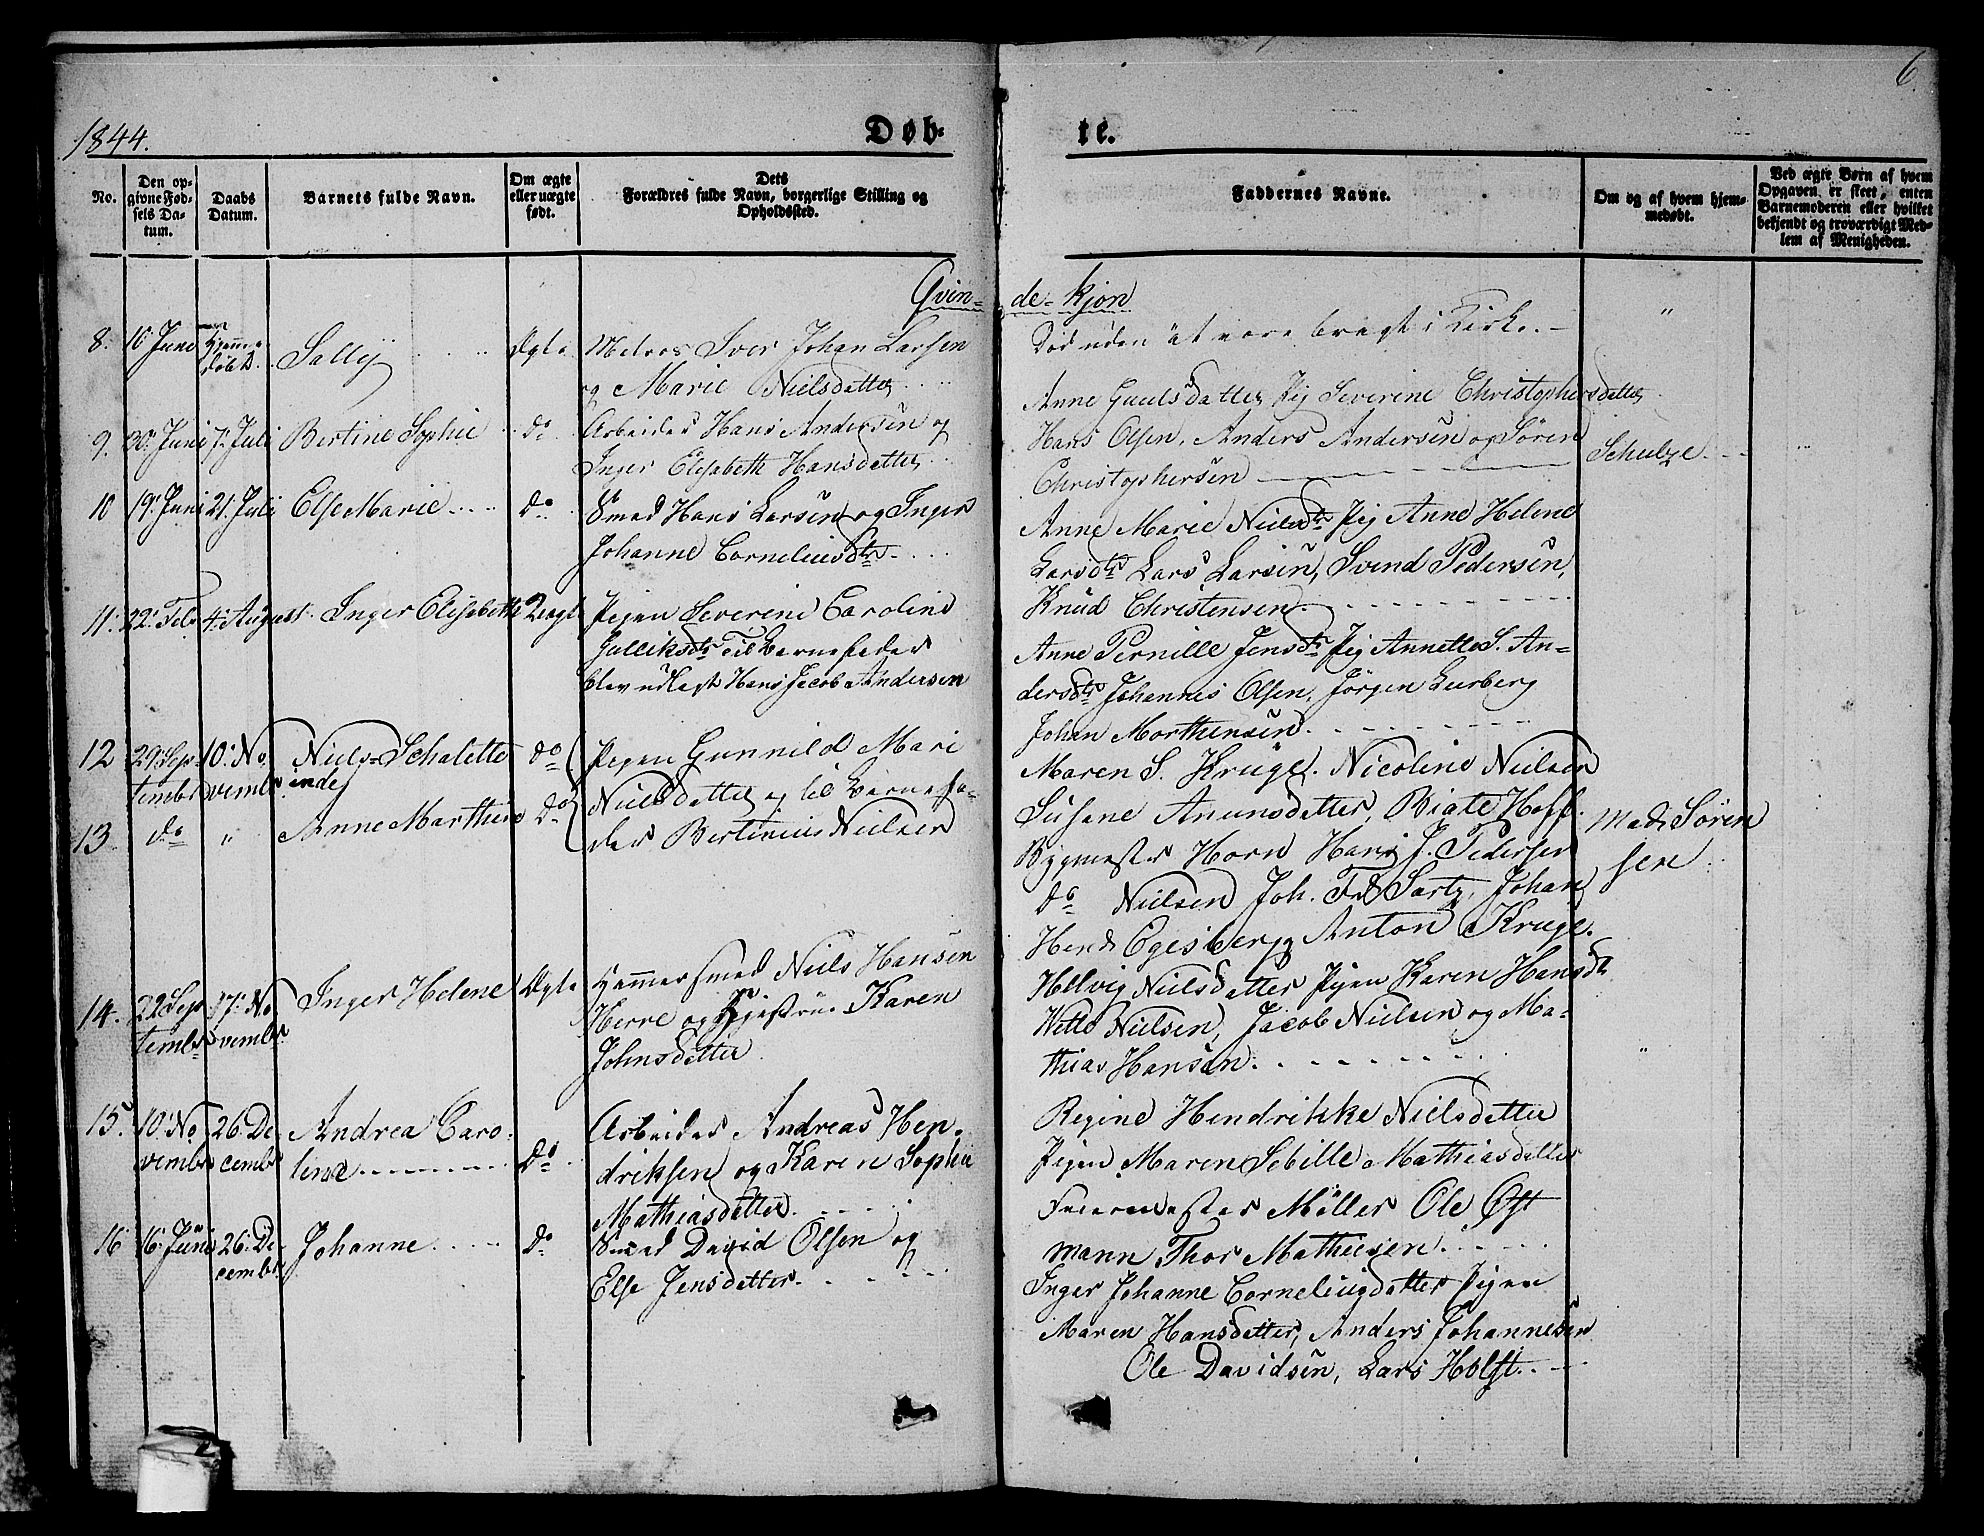 6
1844.
Døb-
te.
No.
Den op-
givne Fød-
sels Da-
tum.
Daabs
Datum.
Barnets fulde Navn.
Om ægte
eller uægte
født.
Dets
Forældres fulde Navn, borgerlige Stilling og
Opholdssted.
Faddernes Navne.
Om og af hvem hjem-
medøbt.
Ved ægte Børn af hvem
Opgaven er skeet, enten
Barnemoderen eller hvilket
bekjendt og troværdigt Med-
lem af Menigheden.
Qvin-
de-kjøn
8. 10 Juni Hjemme
døbt. Sally Ægte
Johan Larsen
og Marie Nielsdatter
Død uden at være bragt i Kirke.
9. 30 Juni 7. Juli Bertine Sophie do
Arbeider Hans Andersen og
Inger Elisabeth Hansdatter
Anne Gaulsdatter Pig Severine Christophersdatter
Hans Olsen, Anders Andersen og Søren
Christophersen
Schulze
10 19 Juni 21. Juli Else Marie do
Smed Hans Larsen og Inger
Johanne Corneliusdtr
Anne Marie Nielsdtr Pig Anne Helene
Larsdtr Lars Larsen, Svend Pedersen,
Knud Christensen
11. 22. Feb 4. August Inger Elisabeth Uægt
Pigen Severine Caroline
Gulliksdtr Til Barnefader
blev udlagt Hans Jacob Andersen
Anne Pernille Jensdtr Pig Annette S. An-
dersdtr Johannes Olsen, Jørgen Lurberg
Johan Morthensen
12 29. Sep-
tembr 10. No-
vembr Niels Schalotte do
Pigen Gunnild Mari
Nielsdatter og til Barnefa-
der Bertinius Nielsen
13 do " Anne Marthine do
Maren S. Krüge. Nicoline Nielsen
Susane Amunsdatter, Biate Hoff.
Bygmester Horn Hans J. Pedersen
do Nielsen Joh. Fr Sartz, Johan
Hend Egesberg Anton Krüge.
Mads Søren
sen
14. 22 Sep
tembr 17. No
vembr Inger Helene Ægte
Hammersmed Niels Hansen
Herre og Hustrue Karen
Johnsdatter
Hellvig Nielsdatter Pigen Karen Hansdtr
Nielsen, Jacob Nielsen og Ma-
thias Hansen.
15. 10. No
vembr 26. De
cembr Andrea Caro-
line do
Arbeider Andreas Hen-
driksen og Karen Sophie
Mathiasdatter.
Regine Hendrikke Nielsdatter
Pigen Maren Sebille Mathiasdatter
Møller Ole Øst
mann Thor Mathiesen.
16 16. Juni 26. De-
cembr Johanne do
Smed David Olsen og
Else Jensdatter.
Inger Johanne Corneliusdatter Pigen
Maren Hansdatter, Anders Johannesen
Ole Davidsen, Lars Holst.